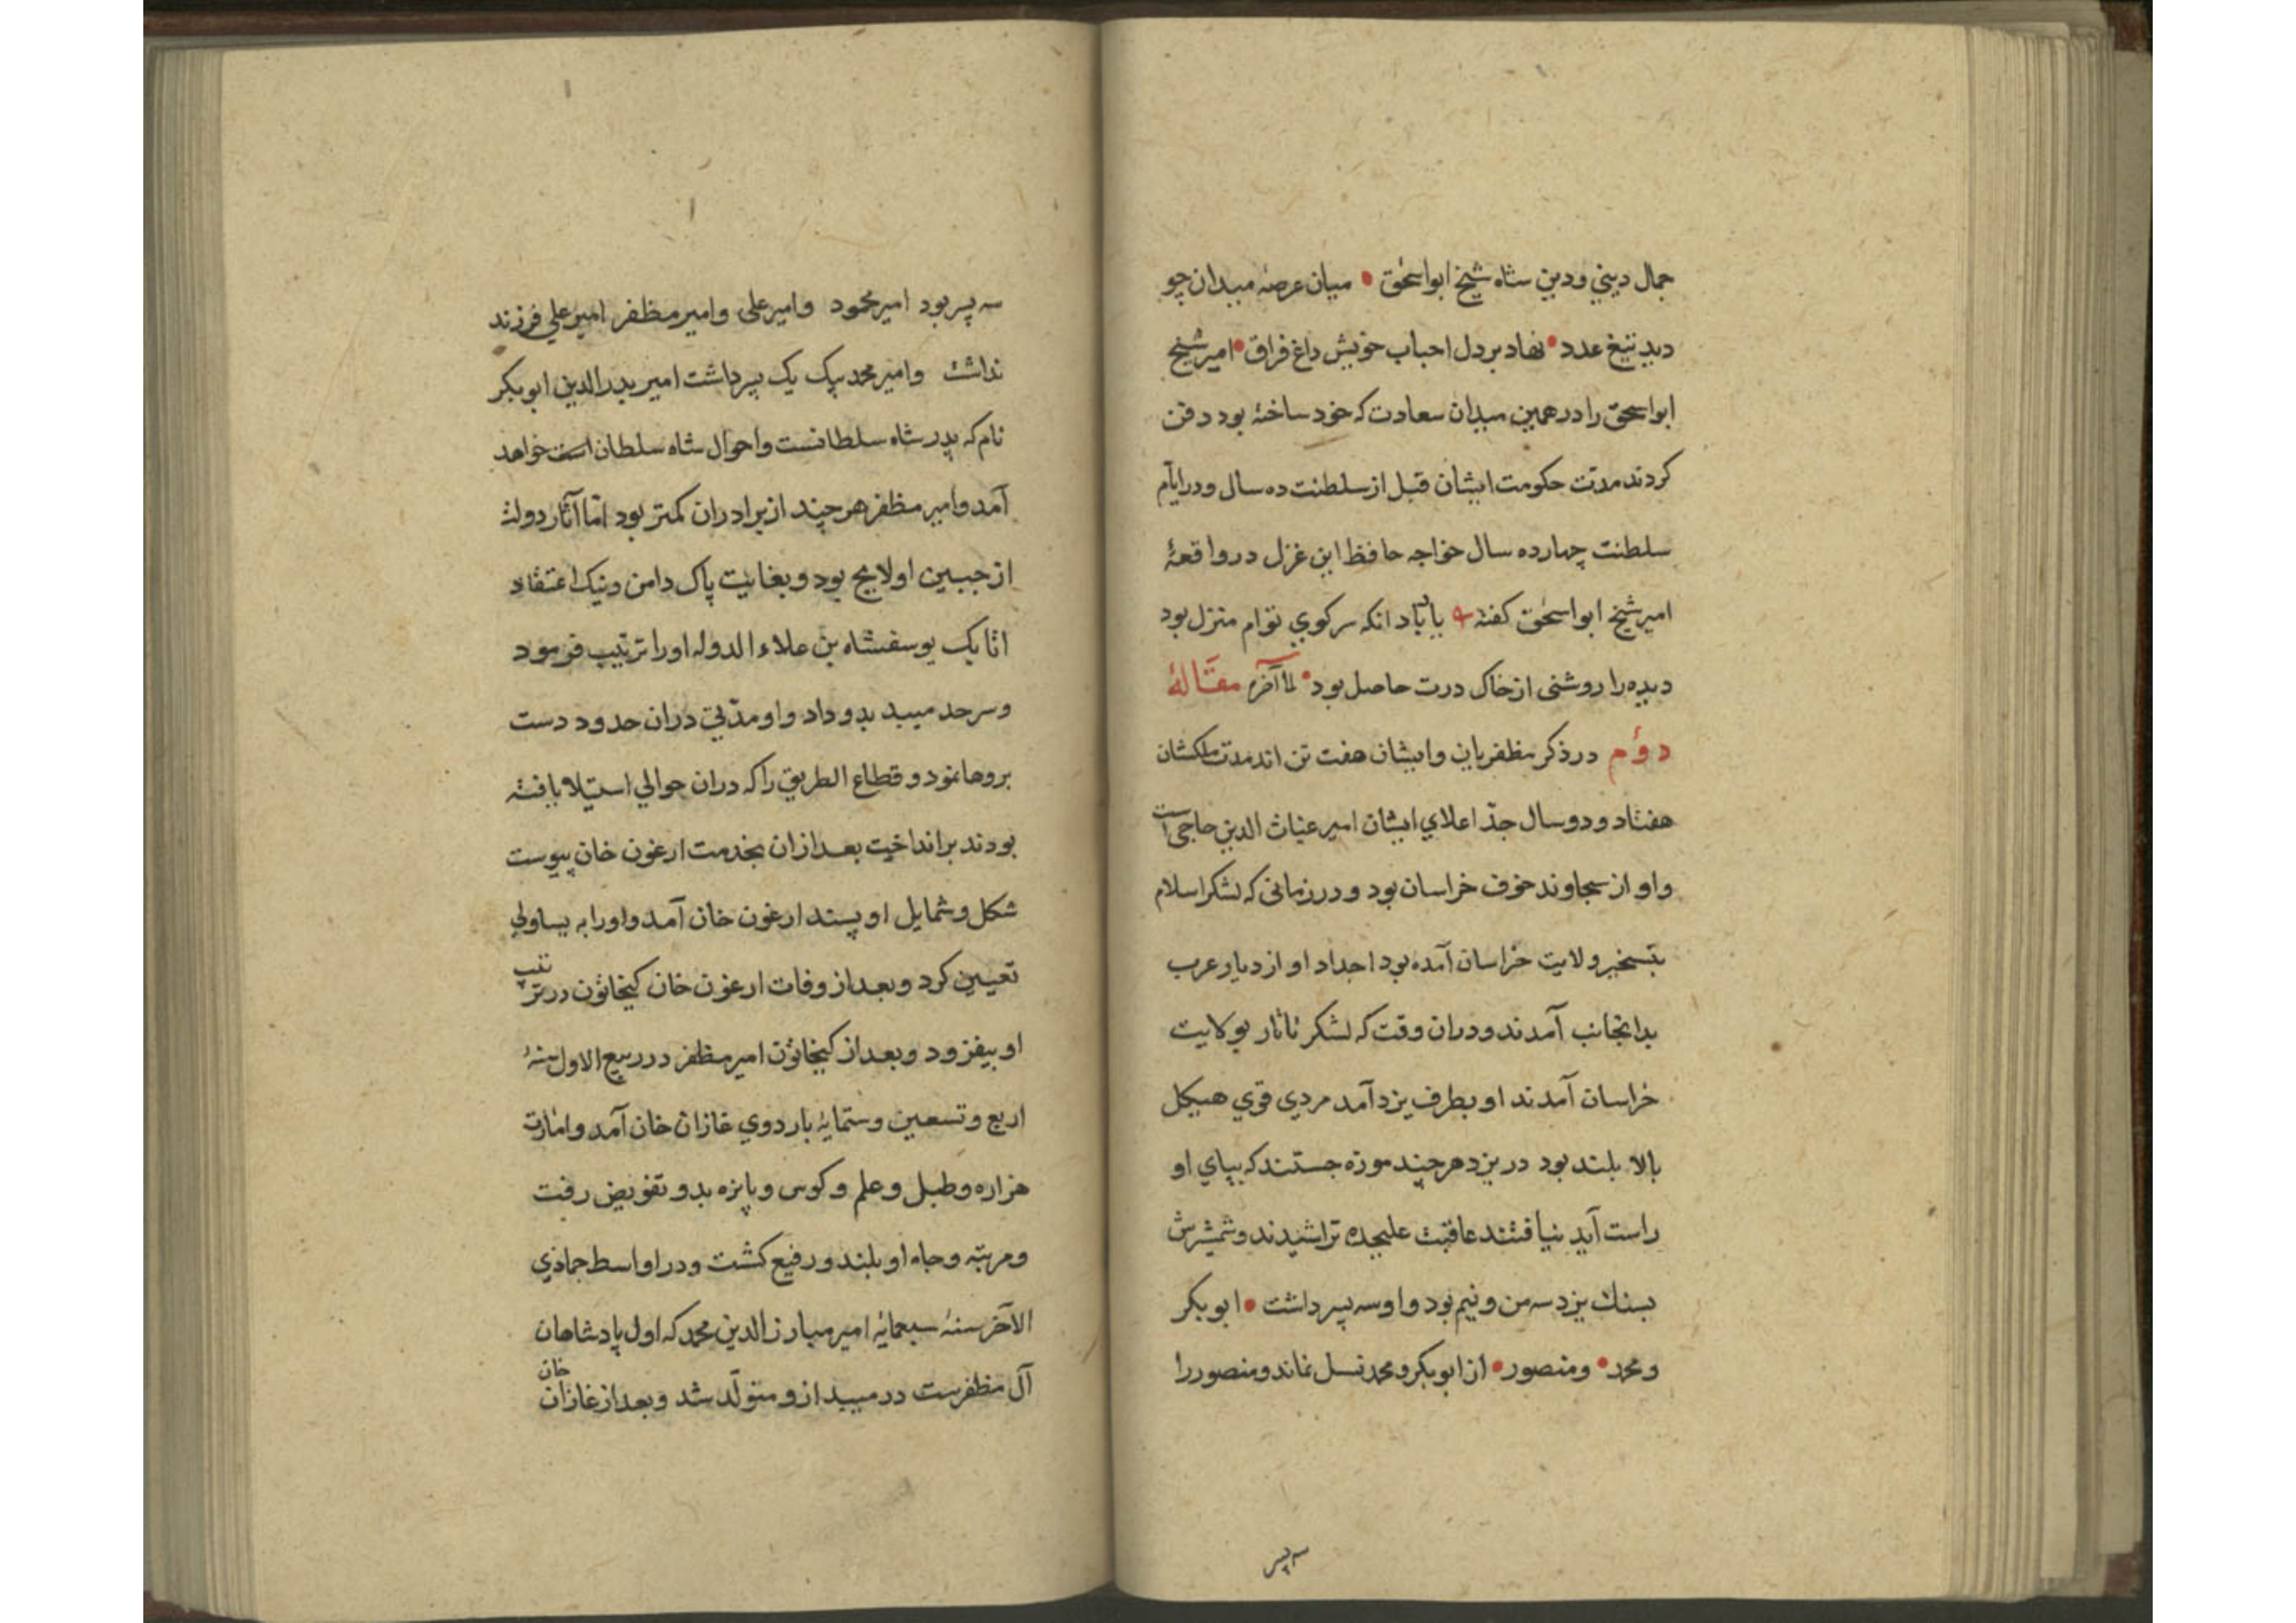 جمال دینی و دین شاه شیخ ابواسحٰق • میان عرصهٔ میدان چو
دید تیغ عدد • نهاد بر دل احباب خویش داغ فراق • امیر شیخ
ابواسحق را در همین میدان سعادت که خود ساخته بود دفن
کردند مدت حکومت ایشان قبل از سلطنت ده سال و در ایّام
سلطنت چهارده سال خواجه حافظ این غزل در واقعهٔ
امیر شیخ ابواسحٰق کفته یاباد انکه سر کوی توام منزل بود
دیده را روشنی از خاک درت حاصل بود • الی آخره مقالهٔ
دوم در ذکر مظفریان و ایشان هفت تن اند مدت ملکشان
هفتاد و دو سال جدّ اعلای ایشان امیر غیاث الدین حاجی است
و او از سجاوند خوف خراسان بود و در زمانی که لشکر اسلام
بتسخیر ولایت خراسان آمده بود اجداد او از دیار عرب
بدانجانب آمدند و دران وقت که لشکر تاتار بولایت
خراسان آمدند او بطرف یزد آمد مردی قوی هیکل
بالا بلند بود در یزد هر چند موزه جستند که بپای او
راست آید نیافتند عاقبت علیحده تراشیدند و شمشیرش
بسنك یزد سه من و نیم بود و او سه پسر داشت • ابوبکر
و محمد • و منصور • از ابوبکر و محمد نسل نماند و منصور را
سه پسر
سه پسر بود امیر محمود و امیر علی و امیر مظفر امیر علی فرزند
نداشت و امیر محمد بیک یک پسر داشت امیر بدرالدین ابوبکر
نام که پدر شاه سلطانست و احوال شاه سلطان است خواهد
آمد و امیر مظفر هر چند از برادران کمتر بود امّا آثار دولت
از جبین او لایح بود و بغایت پاک دامن و نیک اعتقاد
اتابک یوسفشاه بن علاء الدوله او را ترتیب فرمود
و سرحد میبد بدو داد و او مدّتی دران حدود دست
بردها نمود و قطاع الطریق را که دران حوالی استیلا یافته
بودند برانداخت بعد ازان بخدمت ارغون خان پیوست
شکل و شمایل او پسند ارغون خان آمد و او را به یساولی
تعیین کرد و بعد از وفات ارغون خان کیخاتون در ترتیب
او بیفزود و بعد از کیخاتون امیر مظفر در ربیع الاول سنهٔ
اربع و تسعین و ستمایهٔ باردوی غازان خان آمد و امارت
هزاره و طبل و علم و کوس و پایزه بدو تفویض رفت
و مرتبه و جاه او بلند و رفیع کشت و در اواسط جمادی
الآخر سنهٔ سبعمایهٔ امیر مبارز الدین محمد که اول پادشاهان
آل مظفرست در میبد ازو متولّد شد و بعد از غازان خان